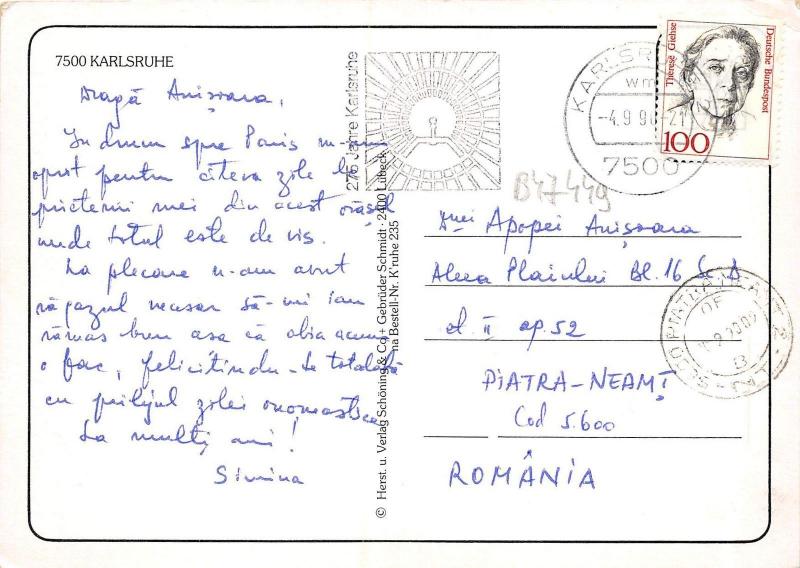 7500 KARLSRUHE
Dragă Anișoara,
În drum spre Paris m-am
oprit pentru cîteva zile la
prietenii mei din acest orășel
unde totul este de vis.
La plecare n-am avut
răgazul necesar să-mi iau
rămas bun asa că abia acum
o fac, felicitîndu-te totodată
cu prilejul zilei onomastice
La mulți ani!
Simina
© Herst. u. Verlag Schöning & Co. + Gebrüder Schmidt · 2400 Lübeck
na Bestell-Nr. K'ruhe 235
275 Jahre Karlsruhe
KARLSRUHE
-4.9.90-21
7500
Therese Giehse
Deutsche Bundespost
100
B47449
Dnei Apopei Anișoara
Aleea Plaiului Bl. 16 Sc. D
et. II ap. 52
PIATRA-NEAMȚ
Cod 5.600
ROMÂNIA
OF